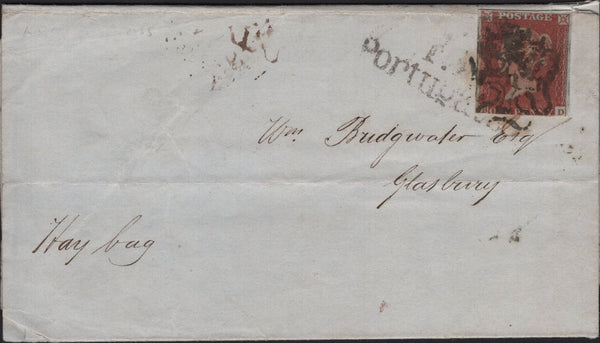 POSTAGE
D
Portugal St
Wm Bridgwater Esq
Glasbury
Hay bag